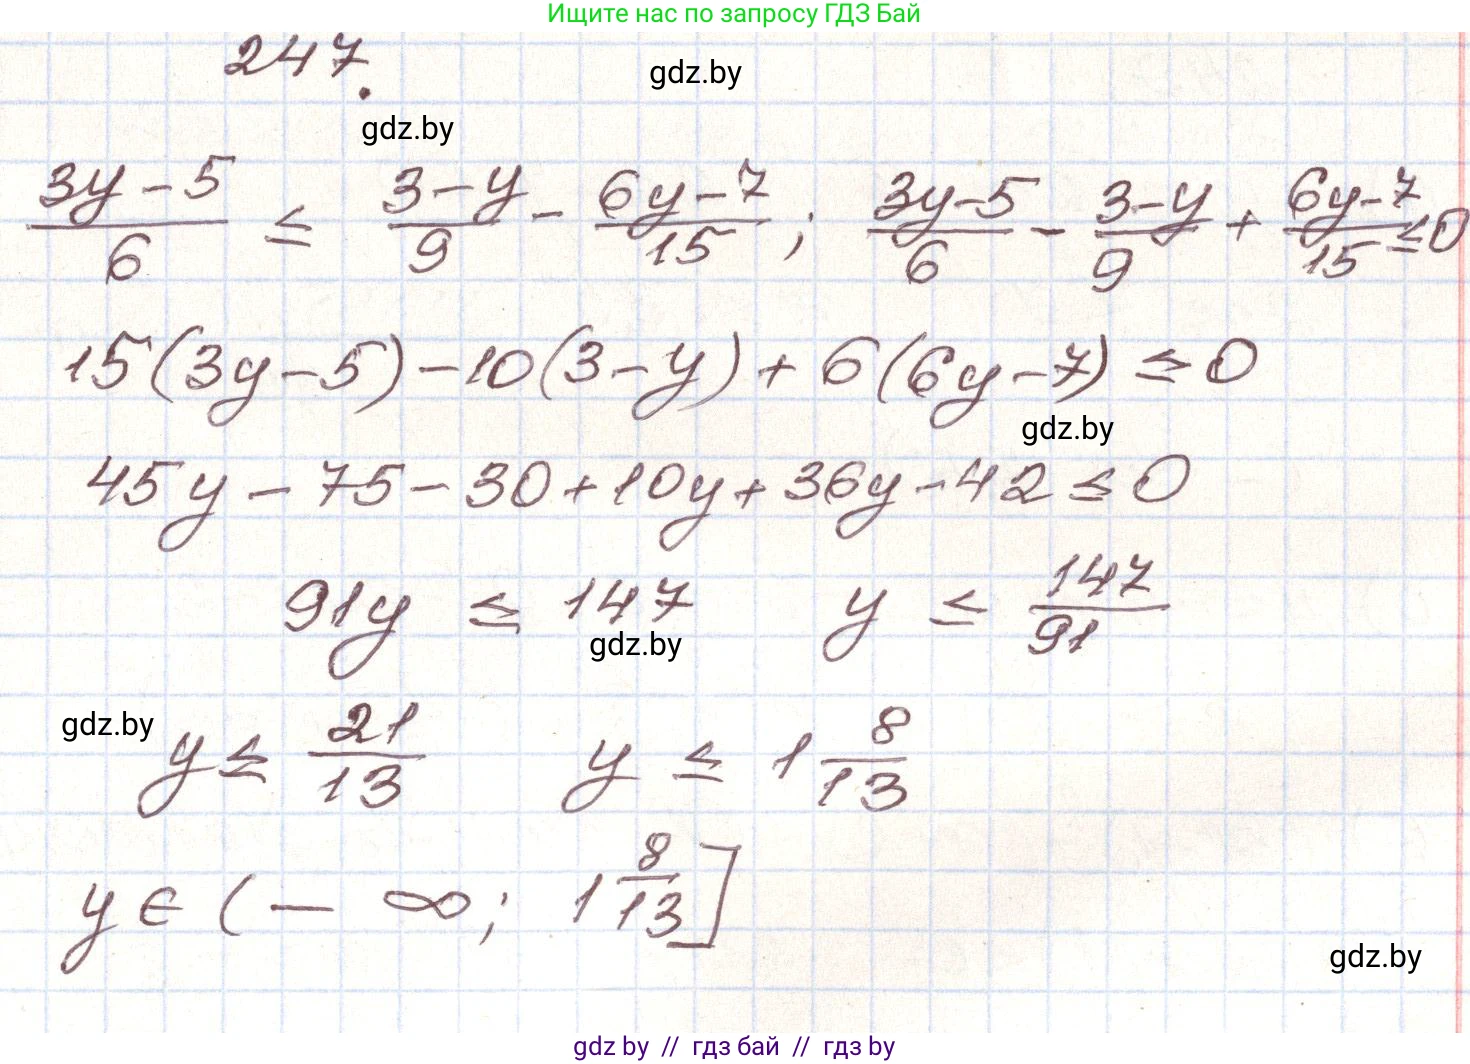 Ищите нас по запросу ГДЗ Бай
247.
gdz.by
gdz.by
(3y-5)/6 ≤ (3-y)/9 - (6y-7)/15 ; (3y-5)/6 - (3-y)/9 + (6y-7)/15 ≤ 0
15(3y-5)-10(3-y)+6(6y-7) ≤ 0
gdz.by
45y-75-30+10y+36y-42 ≤ 0
91y ≤ 147 y ≤ 147/91
gdz.by
gdz.by
y ≤ 21/13 y ≤ 1 8/13
y ∈ (-∞; 1 8/13]
gdz.by
gdz by // гдз бай // гдз by